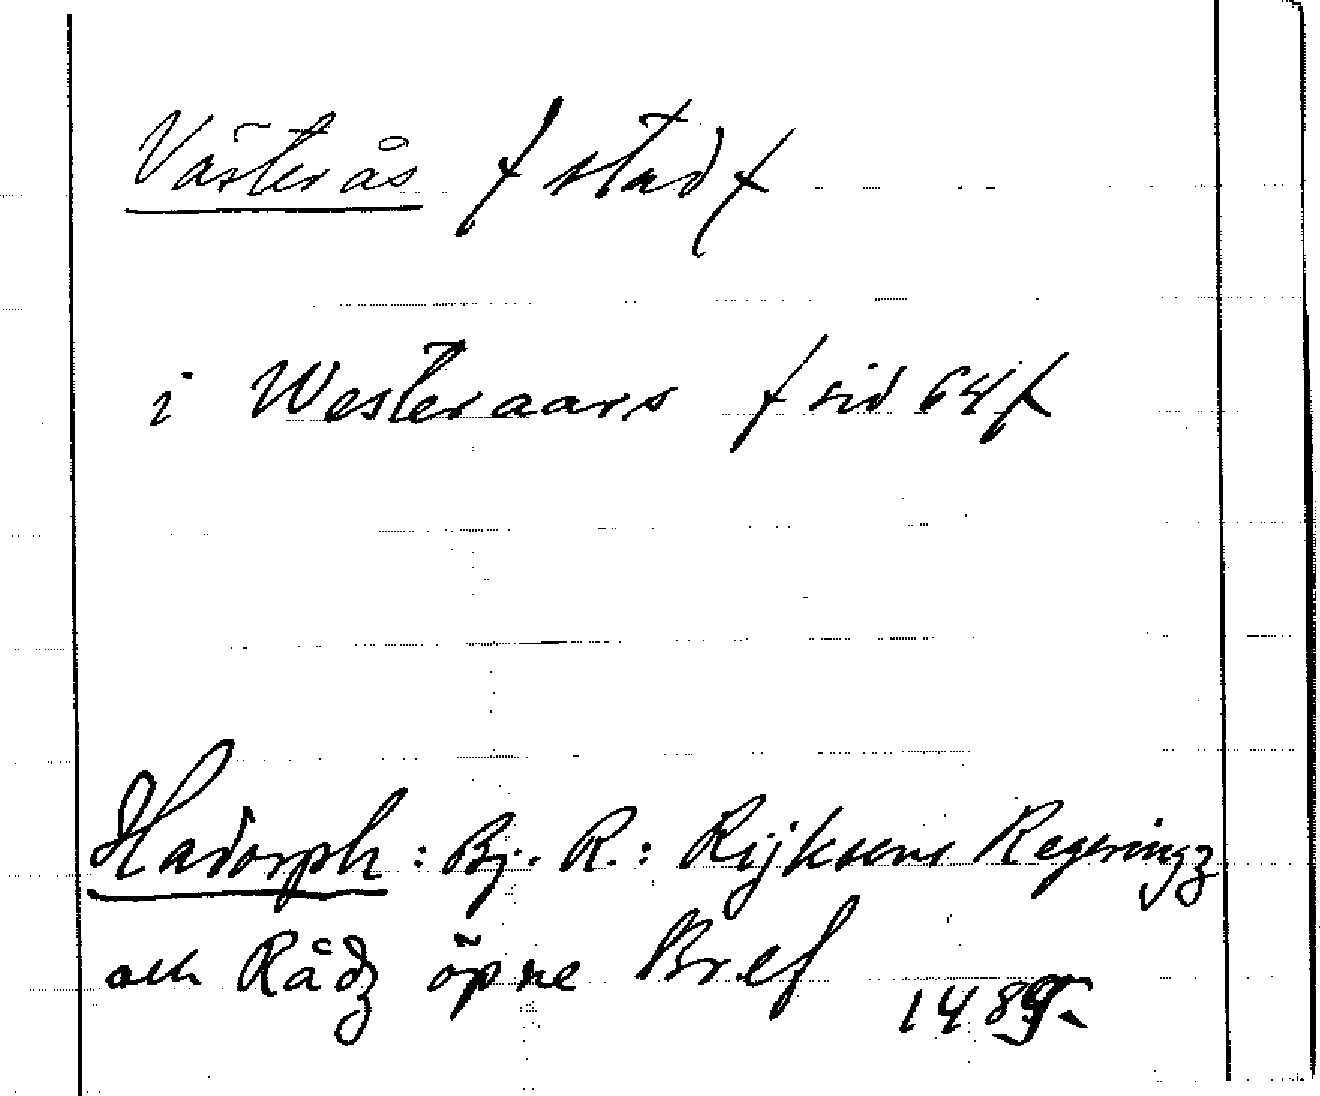 Västerås / stad /
i Westeraars / sid 64 /
Hadorph: Bj. R.: Rijksens Regeringz
och Rådz öpne Bref 1489